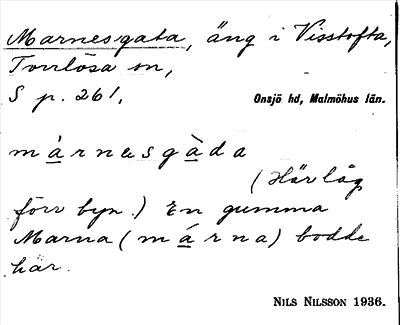 Marnesgata, äng i Visstofta,
Torrlösa sn,
S p. 261,
Onsjö hd, Malmöhus län.
márnasgàda
(Här låg
förr byn.) En gumma
Marna (márna) bodde
här.
NILS NILSSON 1936.